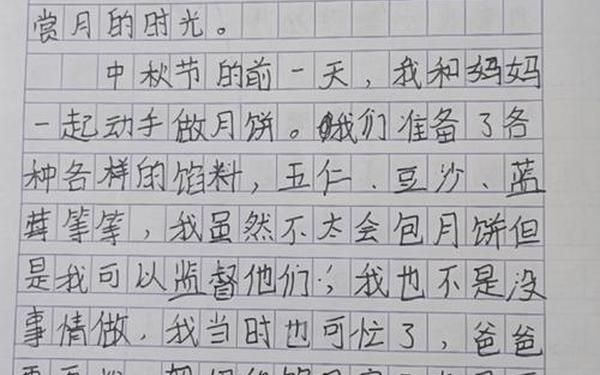 赏月的时光。
中秋节的前一天，我和妈妈
一起动手做月饼。我们准备了各
种各样的馅料，五仁、豆沙、蓝
莓等等，我虽然不太会包月饼但
是我可以监督他们；我也不是没
事情做，我当时也可忙了，爸爸